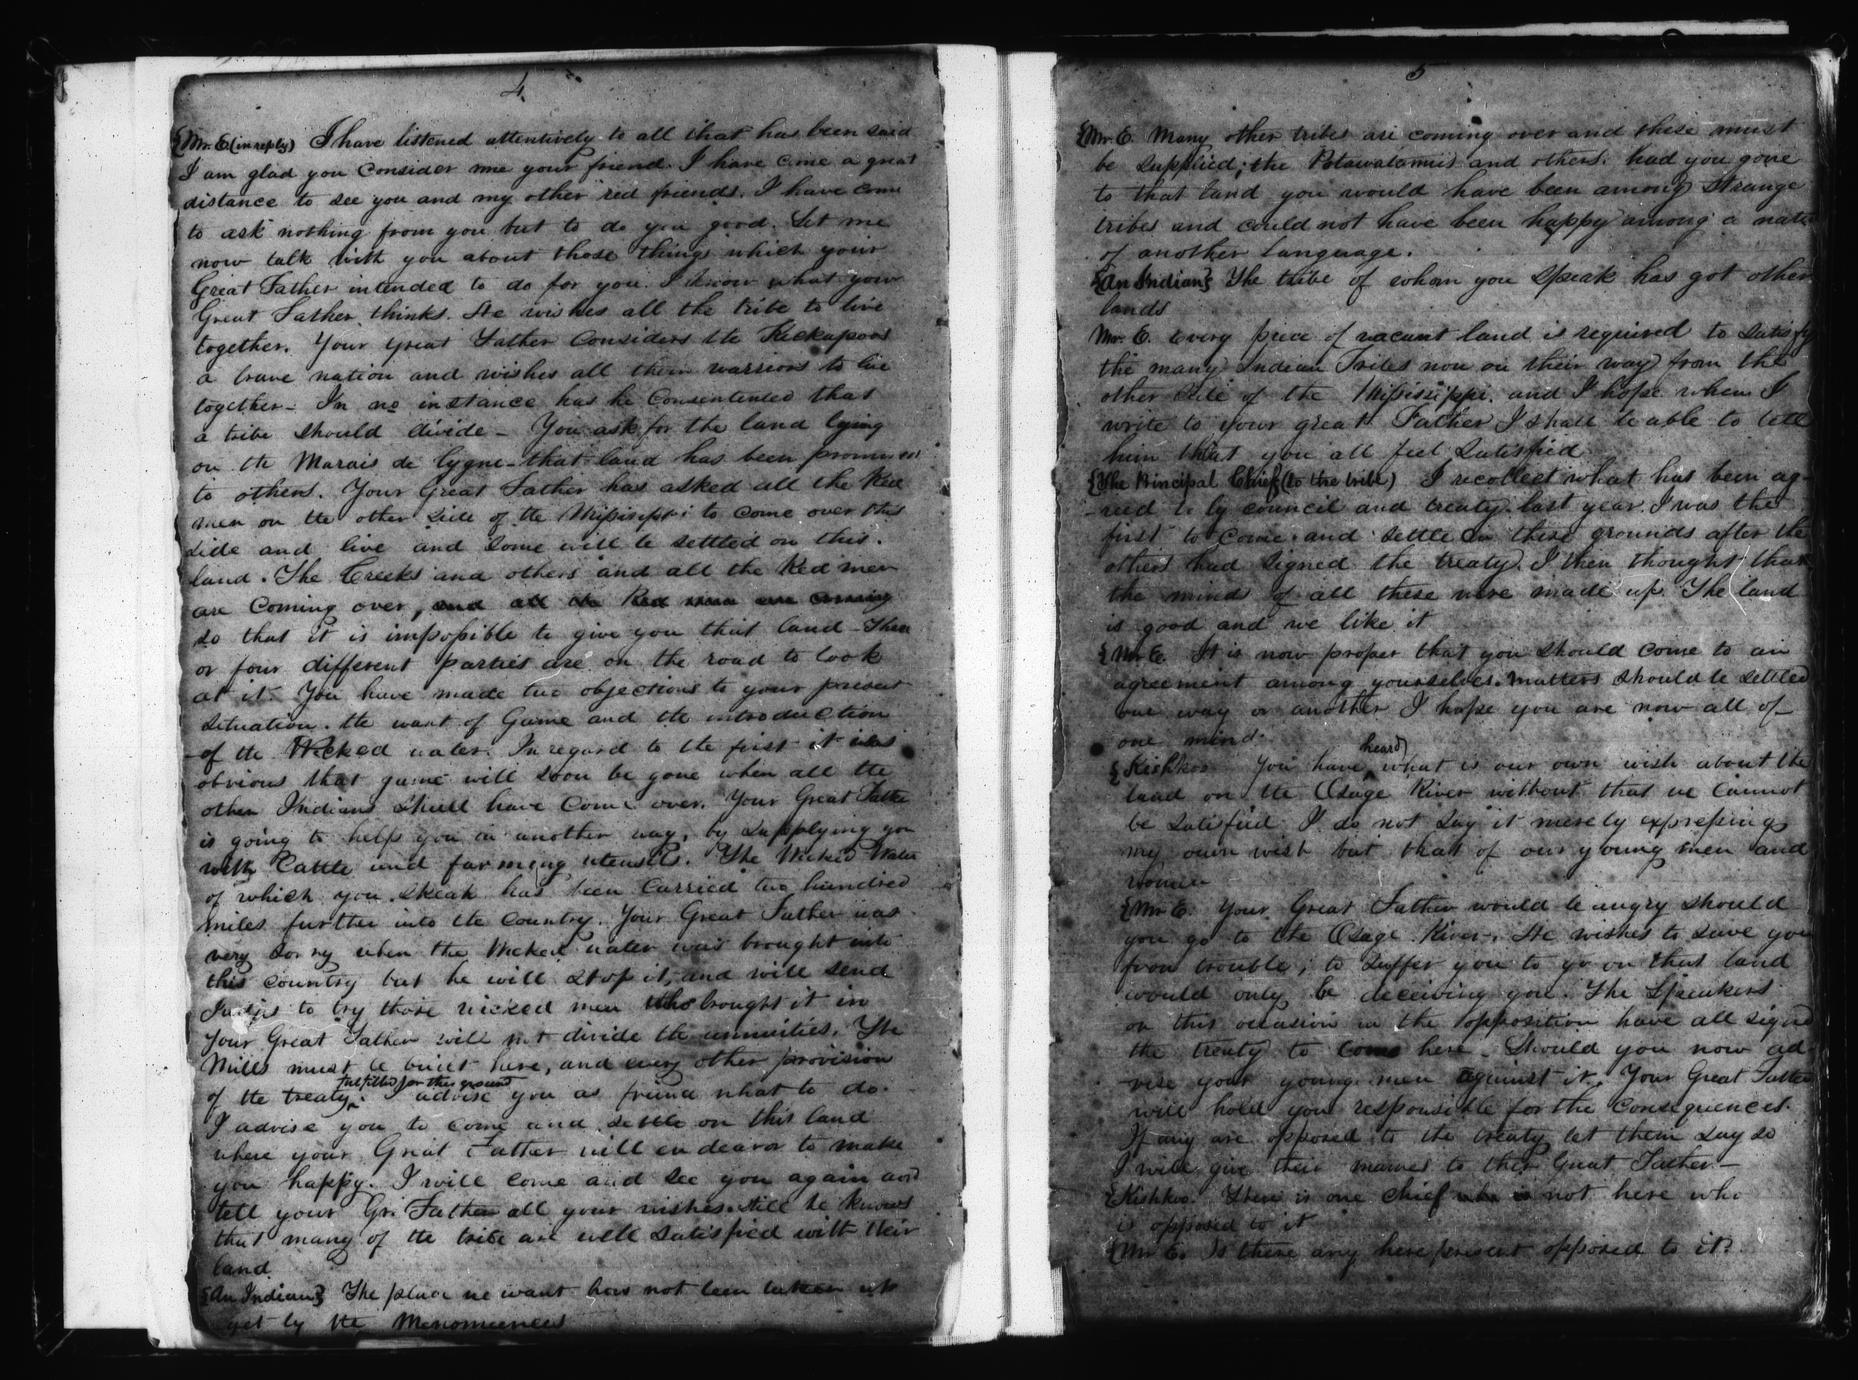 4
{Mr. E (in reply) I have listened attentively to all that has been said
I am glad you consider me your friend. I have come a great
distance to see you and my other red friends. I have come
to ask nothing from you but to do you good. Let me
now talk with you about those things which your
Great Father intended to do for you. I know what your
Great Father thinks. He wishes all the tribe to live
together. Your great Father Considers the Kickapoos
a brave nation and wishes all their warriors to live
together - In no instance has he Consentented that
a tribe should divide - You ask for the land lying
on the Marais de Cygne - that land has been promised
to others. Your Great Father has asked all the Red
men on the other side of the Missisippi to come over this
side and live and some will be settled on this.
land. The Creeks and others and all the Red men
are Coming over, and all the Red men are coming
so that it is impossible to give you that land - Three
or four different parties are on the road to look
at it. You have made two objections to your present
situation. the want of Game and the introduction
of the Wicked water. In regard to the first it was
obvious that game will soon be gone when all the
other Indians shall have Come over. Your Great Father
is going to help you in another way, by supplying you
with Cattle and farming utensils. The Wicked Water
of which you speak has been Carried two hundred
miles further into the country. Your Great Father was
very sorry when the Wicked water was brought into
this country but he will stop it, and will send
Judges to try those wicked men who brought it in
Your Great Father will not divide the annuities. The
Mills must be built here, and every other provision
fulfilled for this ground
of the treaty. I advise you as friend what to do.
I advise you to come and settle on this land
where your Great Father will endeavor to make
you happy. I will come and see you again and
tell your Gr. Father all your wishes. still he knows
that many of the tribe are well satisfied with their
land
{An Indian} The place we want has not been taken up
yet by the Menomeenees
5
{Mr. E. Many other tribes are coming over and these must
be supplied; the Potawatamies and others. had you gone
to that land you would have been among Strange
tribes and could not have been happy among a nati
of another Language.
{An Indian} The tribe of whom you speak has got other
lands
Mr. E. Every piece of vacant land is required to satisfy
the many Indian Tribes now on their way from the
other side of the Missisippi. and I hope when I
write to your great Father I shall be able to tell
him that you all feel satisfied
{The Principal Chief (to the tribe) I recollect what has been ag-
-reed to by council and treaty last year. I was the
first to come and settle on these grounds after the
others had signed the treaty. I then thought that
the minds of all these were made up. The land
is good and we like it
{Mr E. It is now proper that you should come to an
agreement among yourselves. matters should be settled
one way or another I hope you are now all of-
one mind.
heard
{Kishkoo You have what is our own wish about the
land on the Osage River without that we Cannot
be satisfied I do not say it merely expressing
my own wish but that of our young men and
women
{Mr E. Your Great Father would be angry should
you go to the Osage River. He wishes to save you
from trouble; to suffer you to go on that land
would only be deceiving you. The Speakers
on this occasion in the opposition have all signed
the treaty to come here. Should you now ad-
vise your young men against it, Your Great Father
will hold you responsible for the consequences.
If any are opposed to the treaty let them say so
I will give their names to their Great Father -
{Kishkoo. There is one chief who is not here who
is opposed to it
{Mr E. Is there any here present opposed to it?